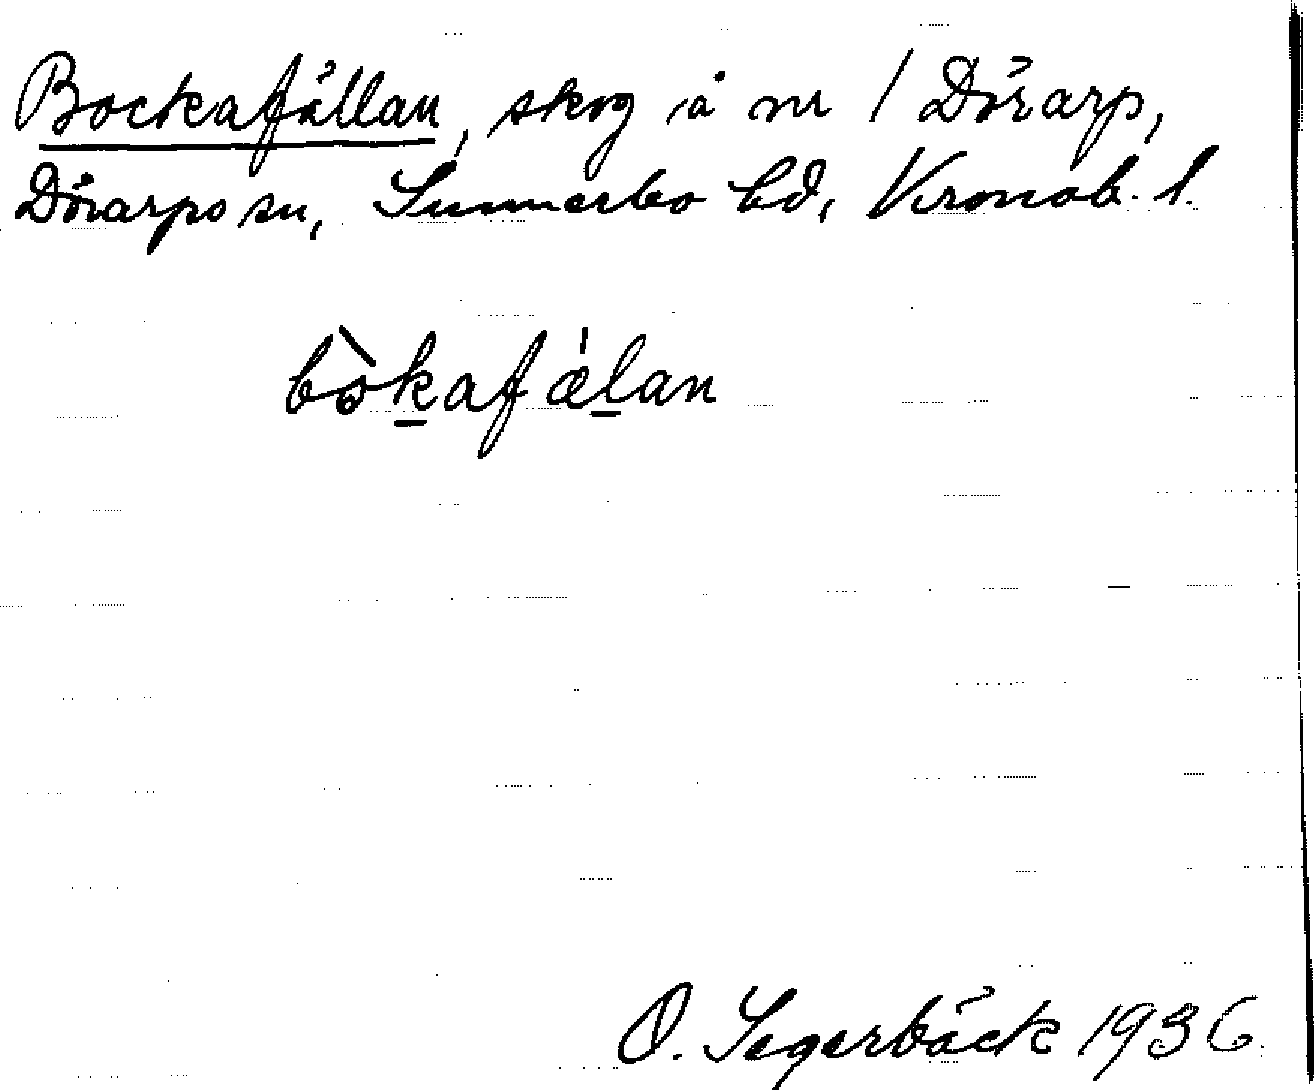 Bockafällan, skog å nr 1 Dörarp,
Dörarps sn, Sunnerbo hd, Kronob. l.
bò̱kafǽḻan
O. Segerbäck 1936